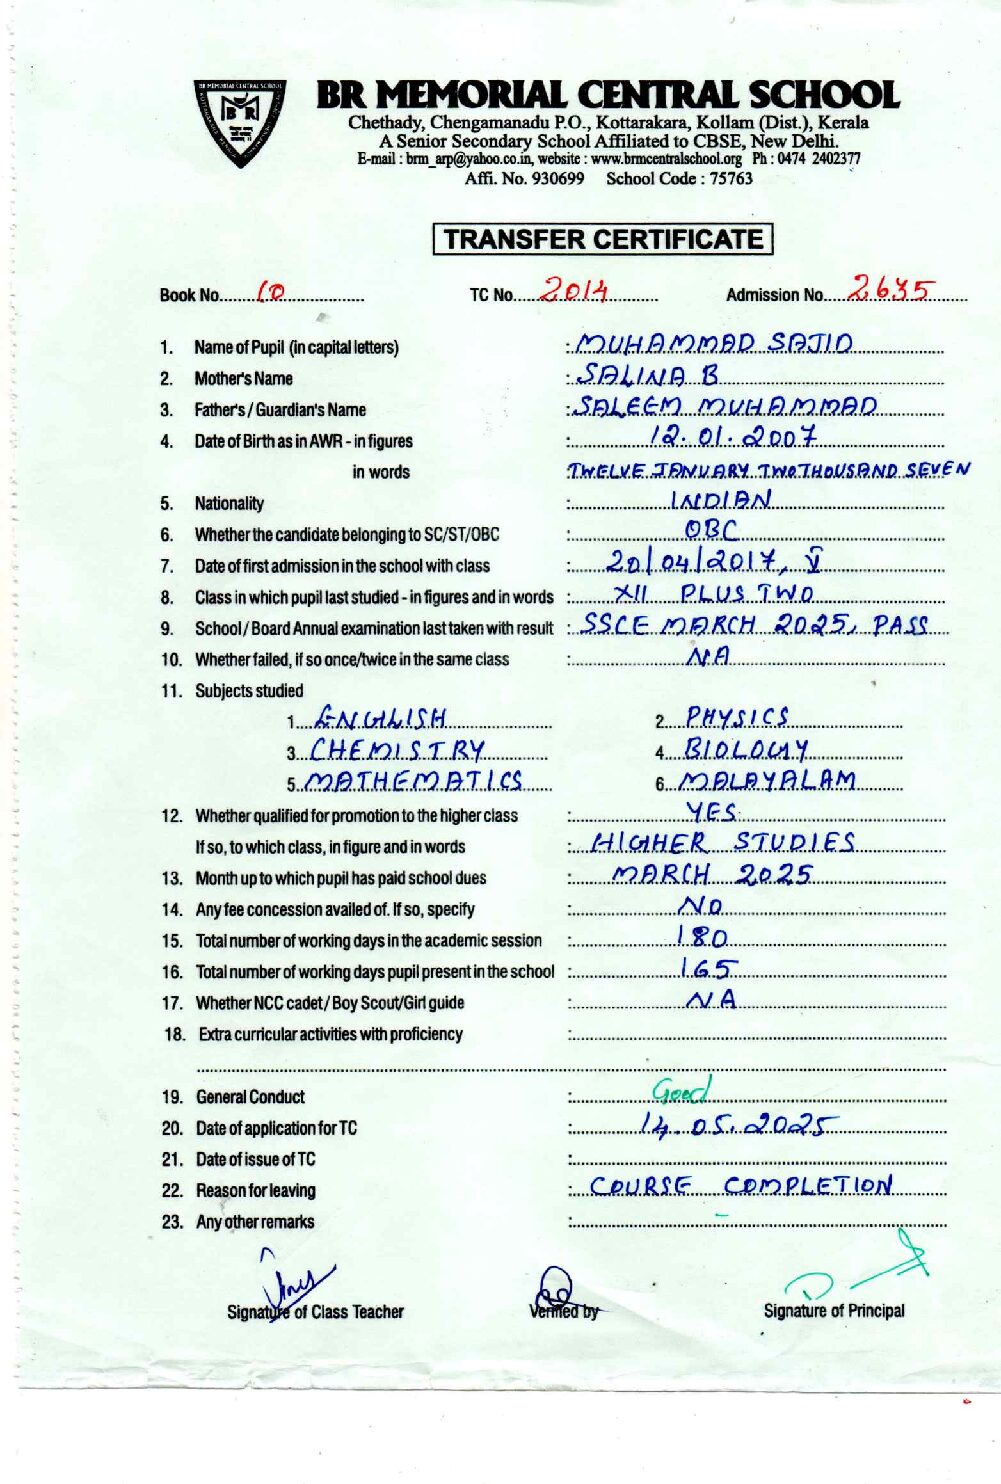 BR MEMORIAL CENTRAL SCHOOL
Chethady, Chengamanadu P.O., Kottarakara, Kollam (Dist.), Kerala
A Senior Secondary School Affiliated to CBSE, New Delhi.
E-mail : brm_arp@yahoo.co.in, website : www.brmcentralschool.org Ph : 0474 2402377
Affi. No. 930699 School Code : 75763
TRANSFER CERTIFICATE
Book No. 10 TC No. 2014 Admission No. 2635
1. Name of Pupil (in capital letters) : MUHAMMAD SAJID
2. Mother's Name : SALINA B
3. Father's / Guardian's Name : SALEEM MUHAMMAD
4. Date of Birth as in AWR - in figures : 12.01.2007
in words TWELVE JANUARY TWO THOUSAND SEVEN
5. Nationality : INDIAN
6. Whether the candidate belonging to SC/ST/OBC : OBC
7. Date of first admission in the school with class : 20/04/2017, V
8. Class in which pupil last studied - in figures and in words : XII PLUS TWO
9. School / Board Annual examination last taken with result : SSCE MARCH 2025, PASS
10. Whether failed, if so once/twice in the same class : NA
11. Subjects studied
1. ENGLISH 2. PHYSICS
3. CHEMISTRY 4. BIOLOGY
5. MATHEMATICS 6. MALAYALAM
12. Whether qualified for promotion to the higher class : YES
If so, to which class, in figure and in words : HIGHER STUDIES
13. Month up to which pupil has paid school dues : MARCH 2025
14. Any fee concession availed of. If so, specify : NO
15. Total number of working days in the academic session : 180
16. Total number of working days pupil present in the school : 165
17. Whether NCC cadet / Boy Scout/Girl guide : NA
18. Extra curricular activities with proficiency :
19. General Conduct : Good
20. Date of application for TC : 14.05.2025
21. Date of issue of TC :
22. Reason for leaving : COURSE COMPLETION
23. Any other remarks :
Signature of Class Teacher Verified by Signature of Principal